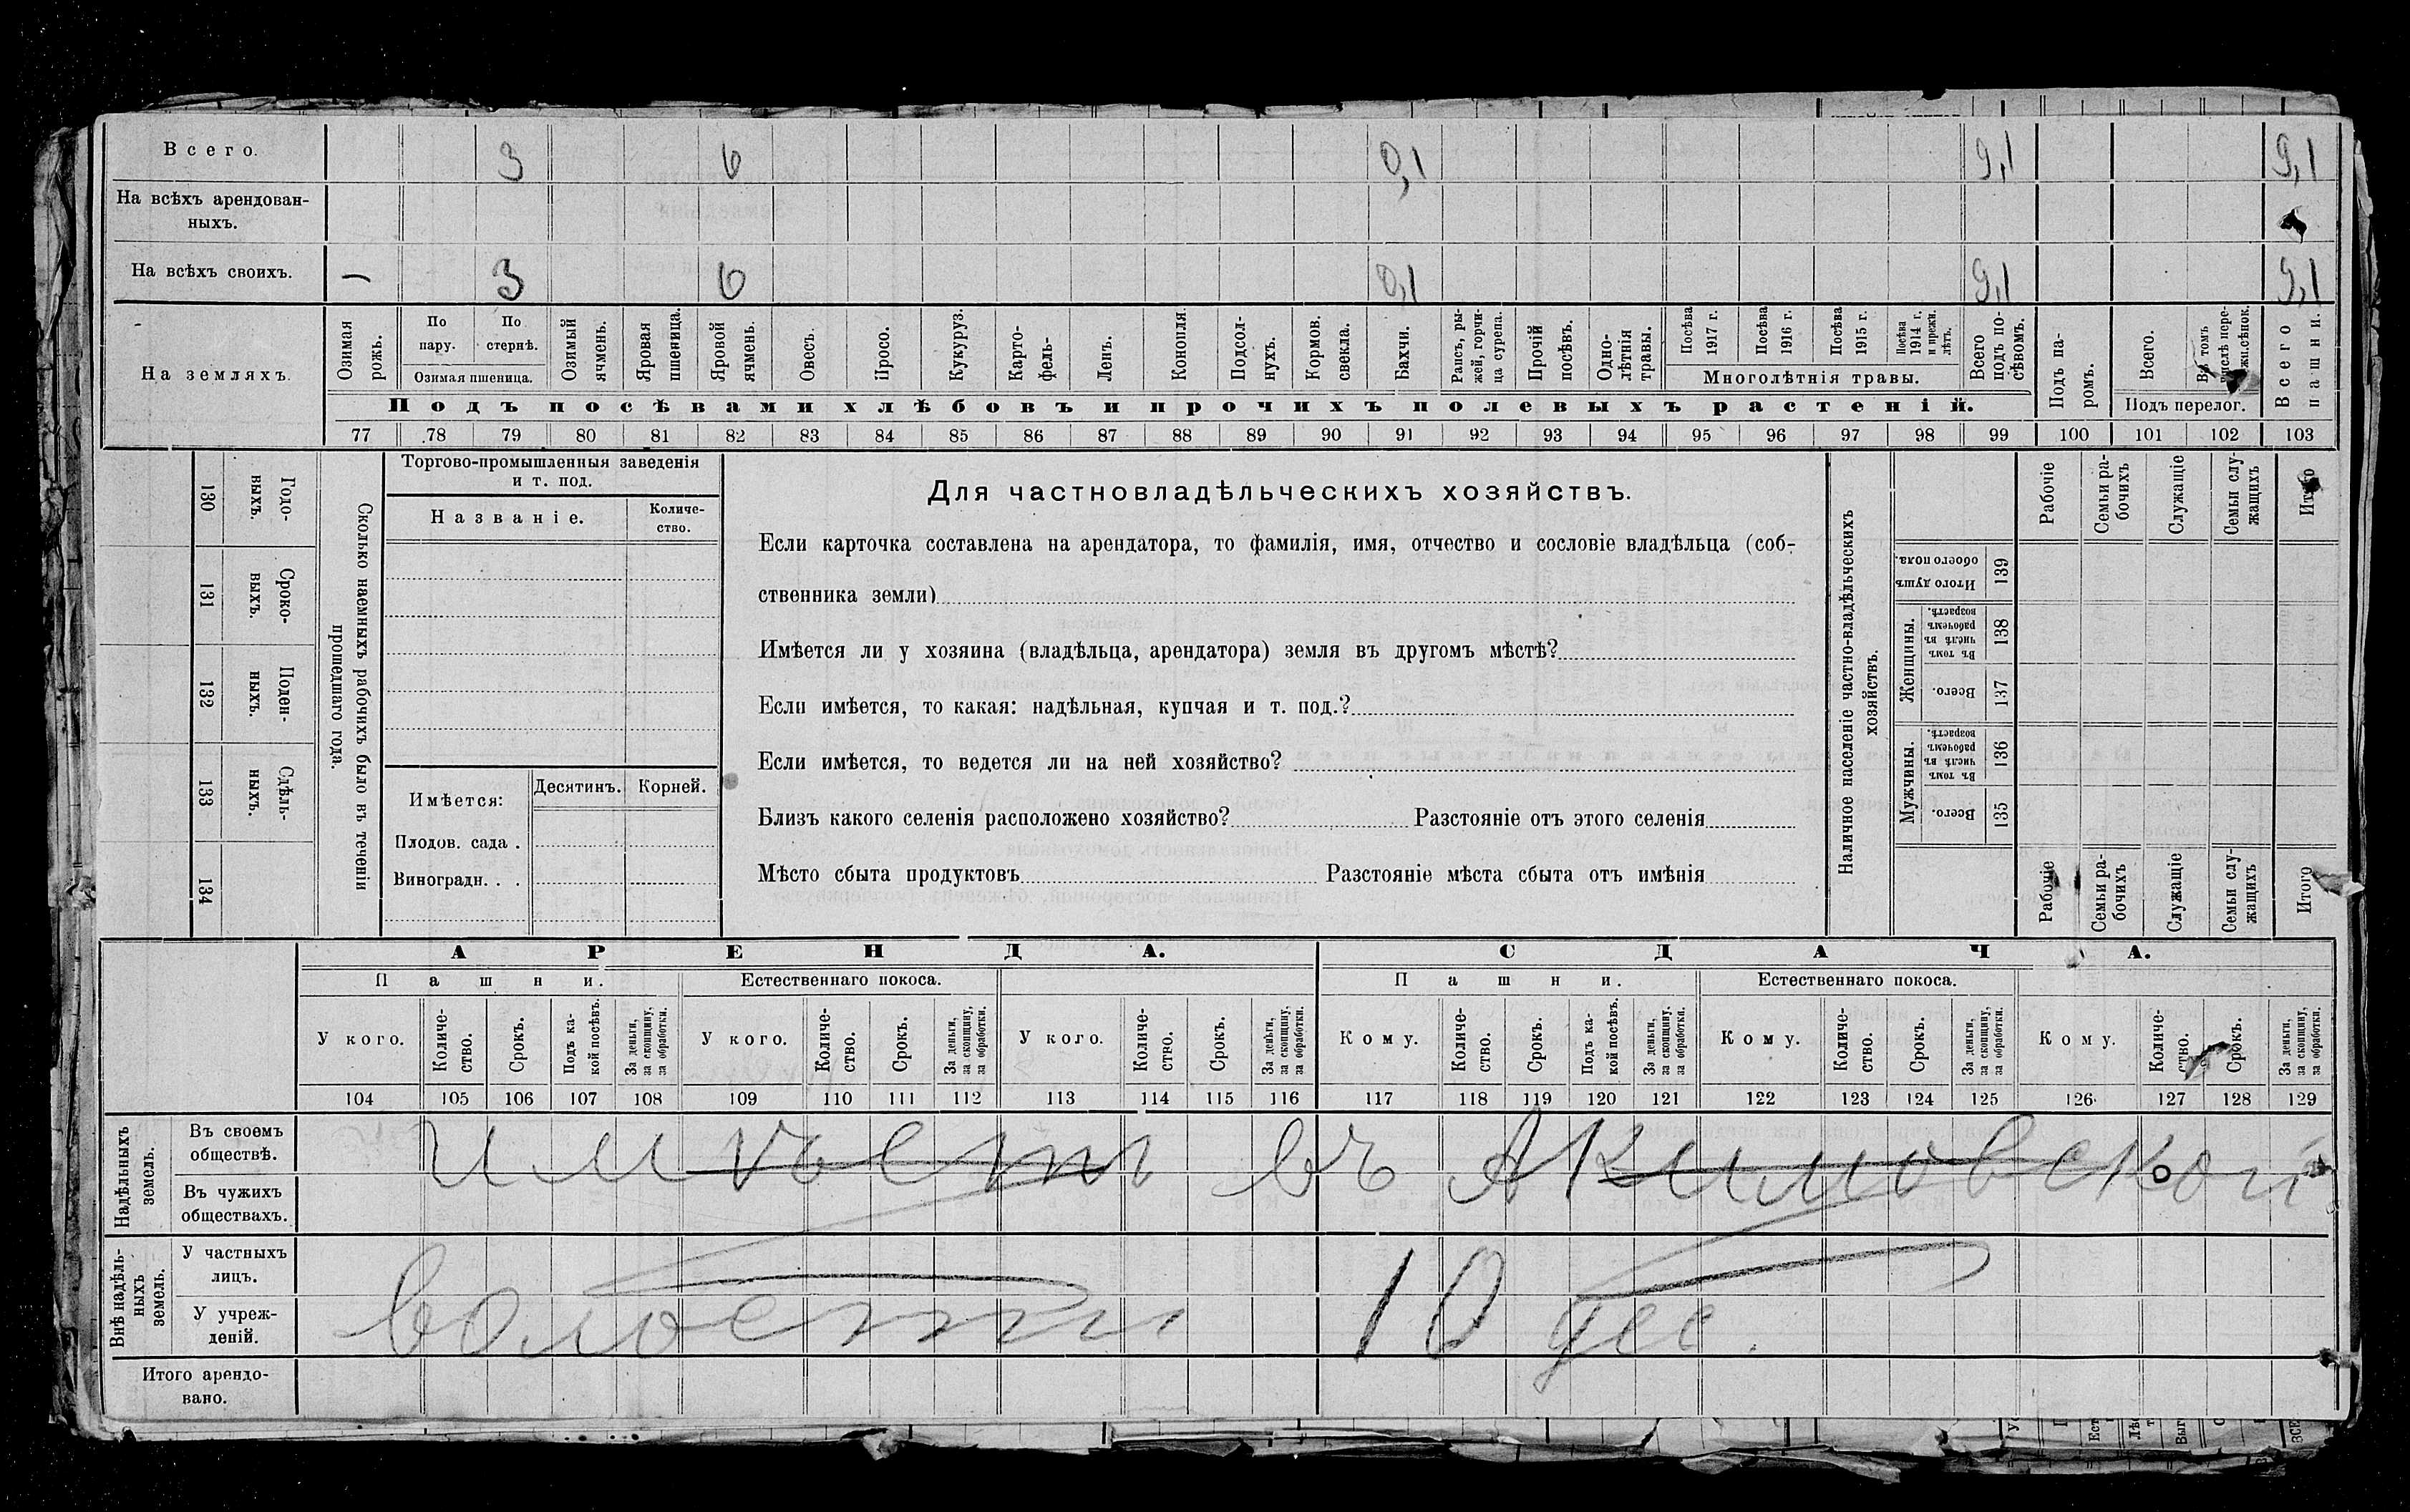 Всего. 3 6 0,1 9,1 9,1
На всѣхъ арендован-
ныхъ.
На всѣхъ своихъ. — 3 6 0,1 9,1 9,1
На земляхъ.
Озимая рожь.
По пару.
По стернѣ.
Озимая пшеница.
Озимый ячмень.
Яровая пшеница.
Яровой ячмень.
Овесъ.
Просо.
Кукуруз.
Карто-
фель-
Ленъ.
Конопля.
Подсол-
нухъ.
Кормов. свекла.
Бахчи.
Рапсъ, ры-
жей, горчи-
ца сурепа.
Прочій посѣвъ.
Одно-
лѣтнія травы.
Посѣва 1917 г.
Посѣва 1916 г.
Посѣва 1915 г.
Посѣва 1914 г. и прежн. лѣтъ.
Многолѣтнія травы.
Всего подъ по-
сѣвомъ.
Подъ па-
ромъ.
Всего.
Въ томъ числѣ пере-
Подъ перелог.
Всего пашни.
Подъ посѣвами хлѣбовъ и прочихъ полевыхъ растеній.
77 78 79 80 81 82 83 84 85 86 87 88 89 90 91 92 93 94 95 96 97 98 99 100 101 102 103
130 Годо-
выхъ.
131 Сроко-
выхъ.
132 Поден-
ныхъ.
133 Сдѣль-
ныхъ.
134
Сколько наемныхъ рабочихъ было въ теченіи
прошедшаго года.
Торгово-промышленныя заведенія
и т. под.
Названіе.
Количе-
ство.
Имѣется: Десятинъ. Корней.
Плодов. сада .
Виноградн. . .
Для частновладѣльческихъ хозяйствъ.
Если карточка составлена на арендатора, то фамилія, имя, отчество и сословіе владѣльца (соб-
ственника земли)
Имѣется ли у хозяина (владѣльца, арендатора) земля въ другомъ мѣстѣ?
Если имѣется, то какая: надѣльная, купчая и т. под.?
Если имѣется, то ведется ли на ней хозяйство?
Близъ какого селенія расположено хозяйство? Разстояніе отъ этого селенія
Мѣсто сбыта продуктовъ Разстояніе мѣста сбыта отъ имѣнія
Наличное населеніе частно-владѣльческихъ
хозяйствъ.
Рабочіе
Семьи ра-
бочихъ
Служащіе
Семьи слу-
жащихъ
Итого
Итого душъ обоего пола. 139
Женщины.
Въ томъ числѣ въ рабочемъ возрастѣ. 138
Всего. 137
Мужчины.
Въ томъ числѣ въ рабочемъ возрастѣ. 136
Всего. 135
Рабочіе
Семьи ра-
бочихъ
Служащіе
Семьи слу-
жащихъ
Итого
АРЕНДА. СДАЧА.
Пашни. Естественнаго покоса. Пашни. Естественнаго покоса.
У кого. Количе-
ство. Срокъ. Подъ ка-
кой посѣвъ. За деньги, за скопщину, за обработки. У кого. Количе-
ство. Срокъ. За деньги, за скопщину, за обработки. У кого. Количе-
ство. Срокъ. За деньги, за скопщину, за обработки. Кому. Количе-
ство. Срокъ. Подъ ка-
кой посѣвъ. За деньги, за скопщину. за обработки. Кому. Количе-
ство. Срокъ. За деньги, за скопщину, за обработки. Кому. Количе-
ство. Срокъ. За деньги, за скопщину, за обработки.
104 105 106 107 108 109 110 111 112 113 114 115 116 117 118 119 120 121 122 123 124 125 126 127 128 129
Надѣльныхъ
земель.
Въ своемъ
обществѣ.
Въ чужихъ
обществахъ.
имѣетъ въ Акимовской
Внѣ надѣль-
ныхъ
земель.
У частныхъ
лицъ.
У учреж-
деній.
волости 10 дес.
Итого арендо-
вано.